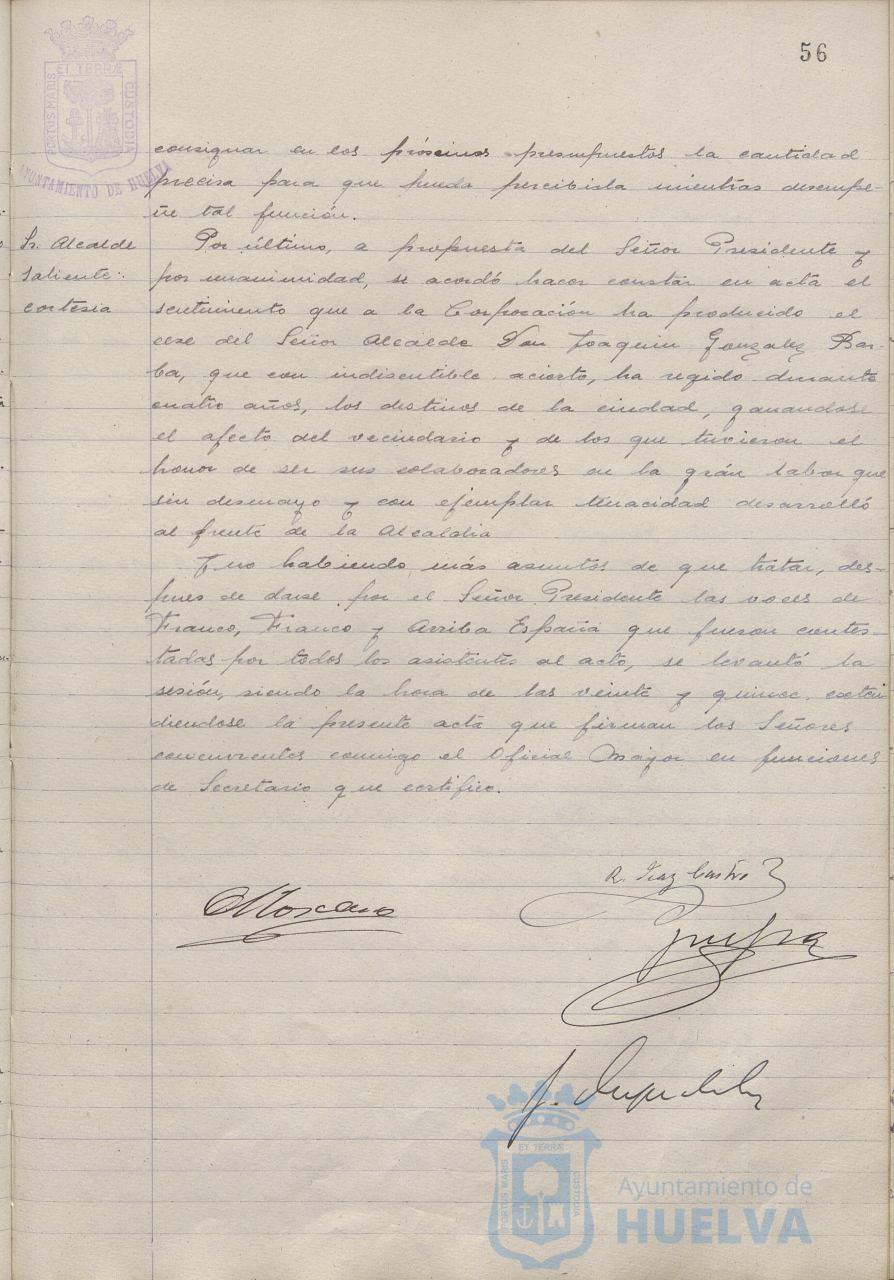 56
PORTUS MARIS ET TERRÆ CUSTODIA
AYUNTAMIENTO DE HUELVA
consignar en los próximos presupuestos la cantidad
precisa para que pueda percibirla mientras desempe-
ñe tal función.
Sr. Alcalde
saliente:
cortesia
Por último, a propuesta del Señor Presidente y
por unanimidad, se acordó hacer constar en acta el
sentimiento que a la Corporación ha producido el
cese del Señor Alcalde Don Joaquin Gonzalez Bar-
ba, que con indiscutible acierto, ha regido durante
cuatro años, los destinos de la ciudad, ganandose
el afecto del vecindario y de los que tuvieron el
honor de ser sus colaboradores en la grán labor que
sin desmayo y con ejemplar tenacidad desarrolló
al frente de la Alcaldia
Y no habiendo más asuntos de que tratar, des-
pues de darse por el Señor Presidente las voces de
Franco, Franco y Arriba España que fueron contes-
tadas por todos los asistentes al acto, se levantó la
sesión, siendo la hora de las veinte y quince exten-
diendose la presente acta que firman los Señores
concurrentes conmigo el Oficial Mayor en funciones
de Secretario que certifico.
R. Diaz Castro
PORTUS MARIS ET TERRÆ CUSTODIA
Ayuntamiento de
HUELVA